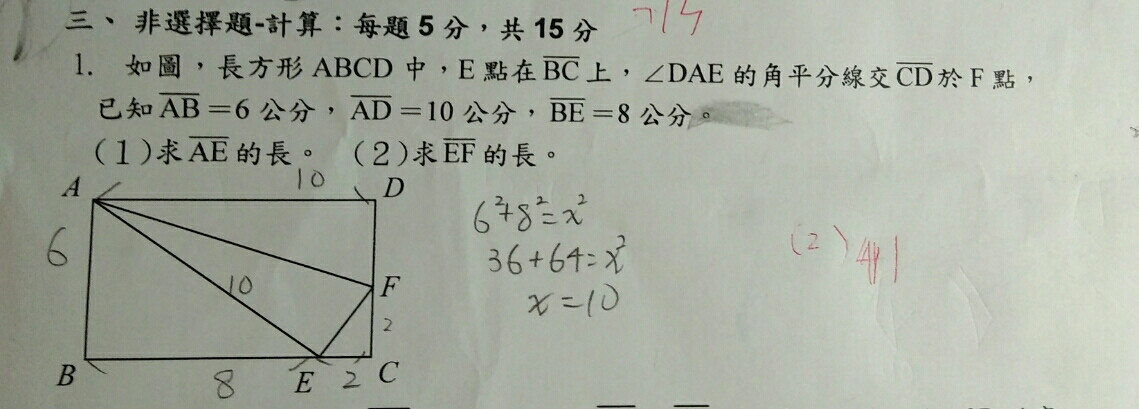 三、非選擇題-計算：每題 5 分，共 15 分
1. 如圖，長方形 ABCD 中，E 點在 BC 上，∠DAE 的角平分線交 CD 於 F 點，
已知 AB =6 公分，AD =10 公分，BE =8 公分。
(1)求 AE 的長。 (2)求 EF 的長。
A 10 D
6²+8²=x²
6
36+64=x²
(2)
10 F
x=10
2
B 8 E 2 C